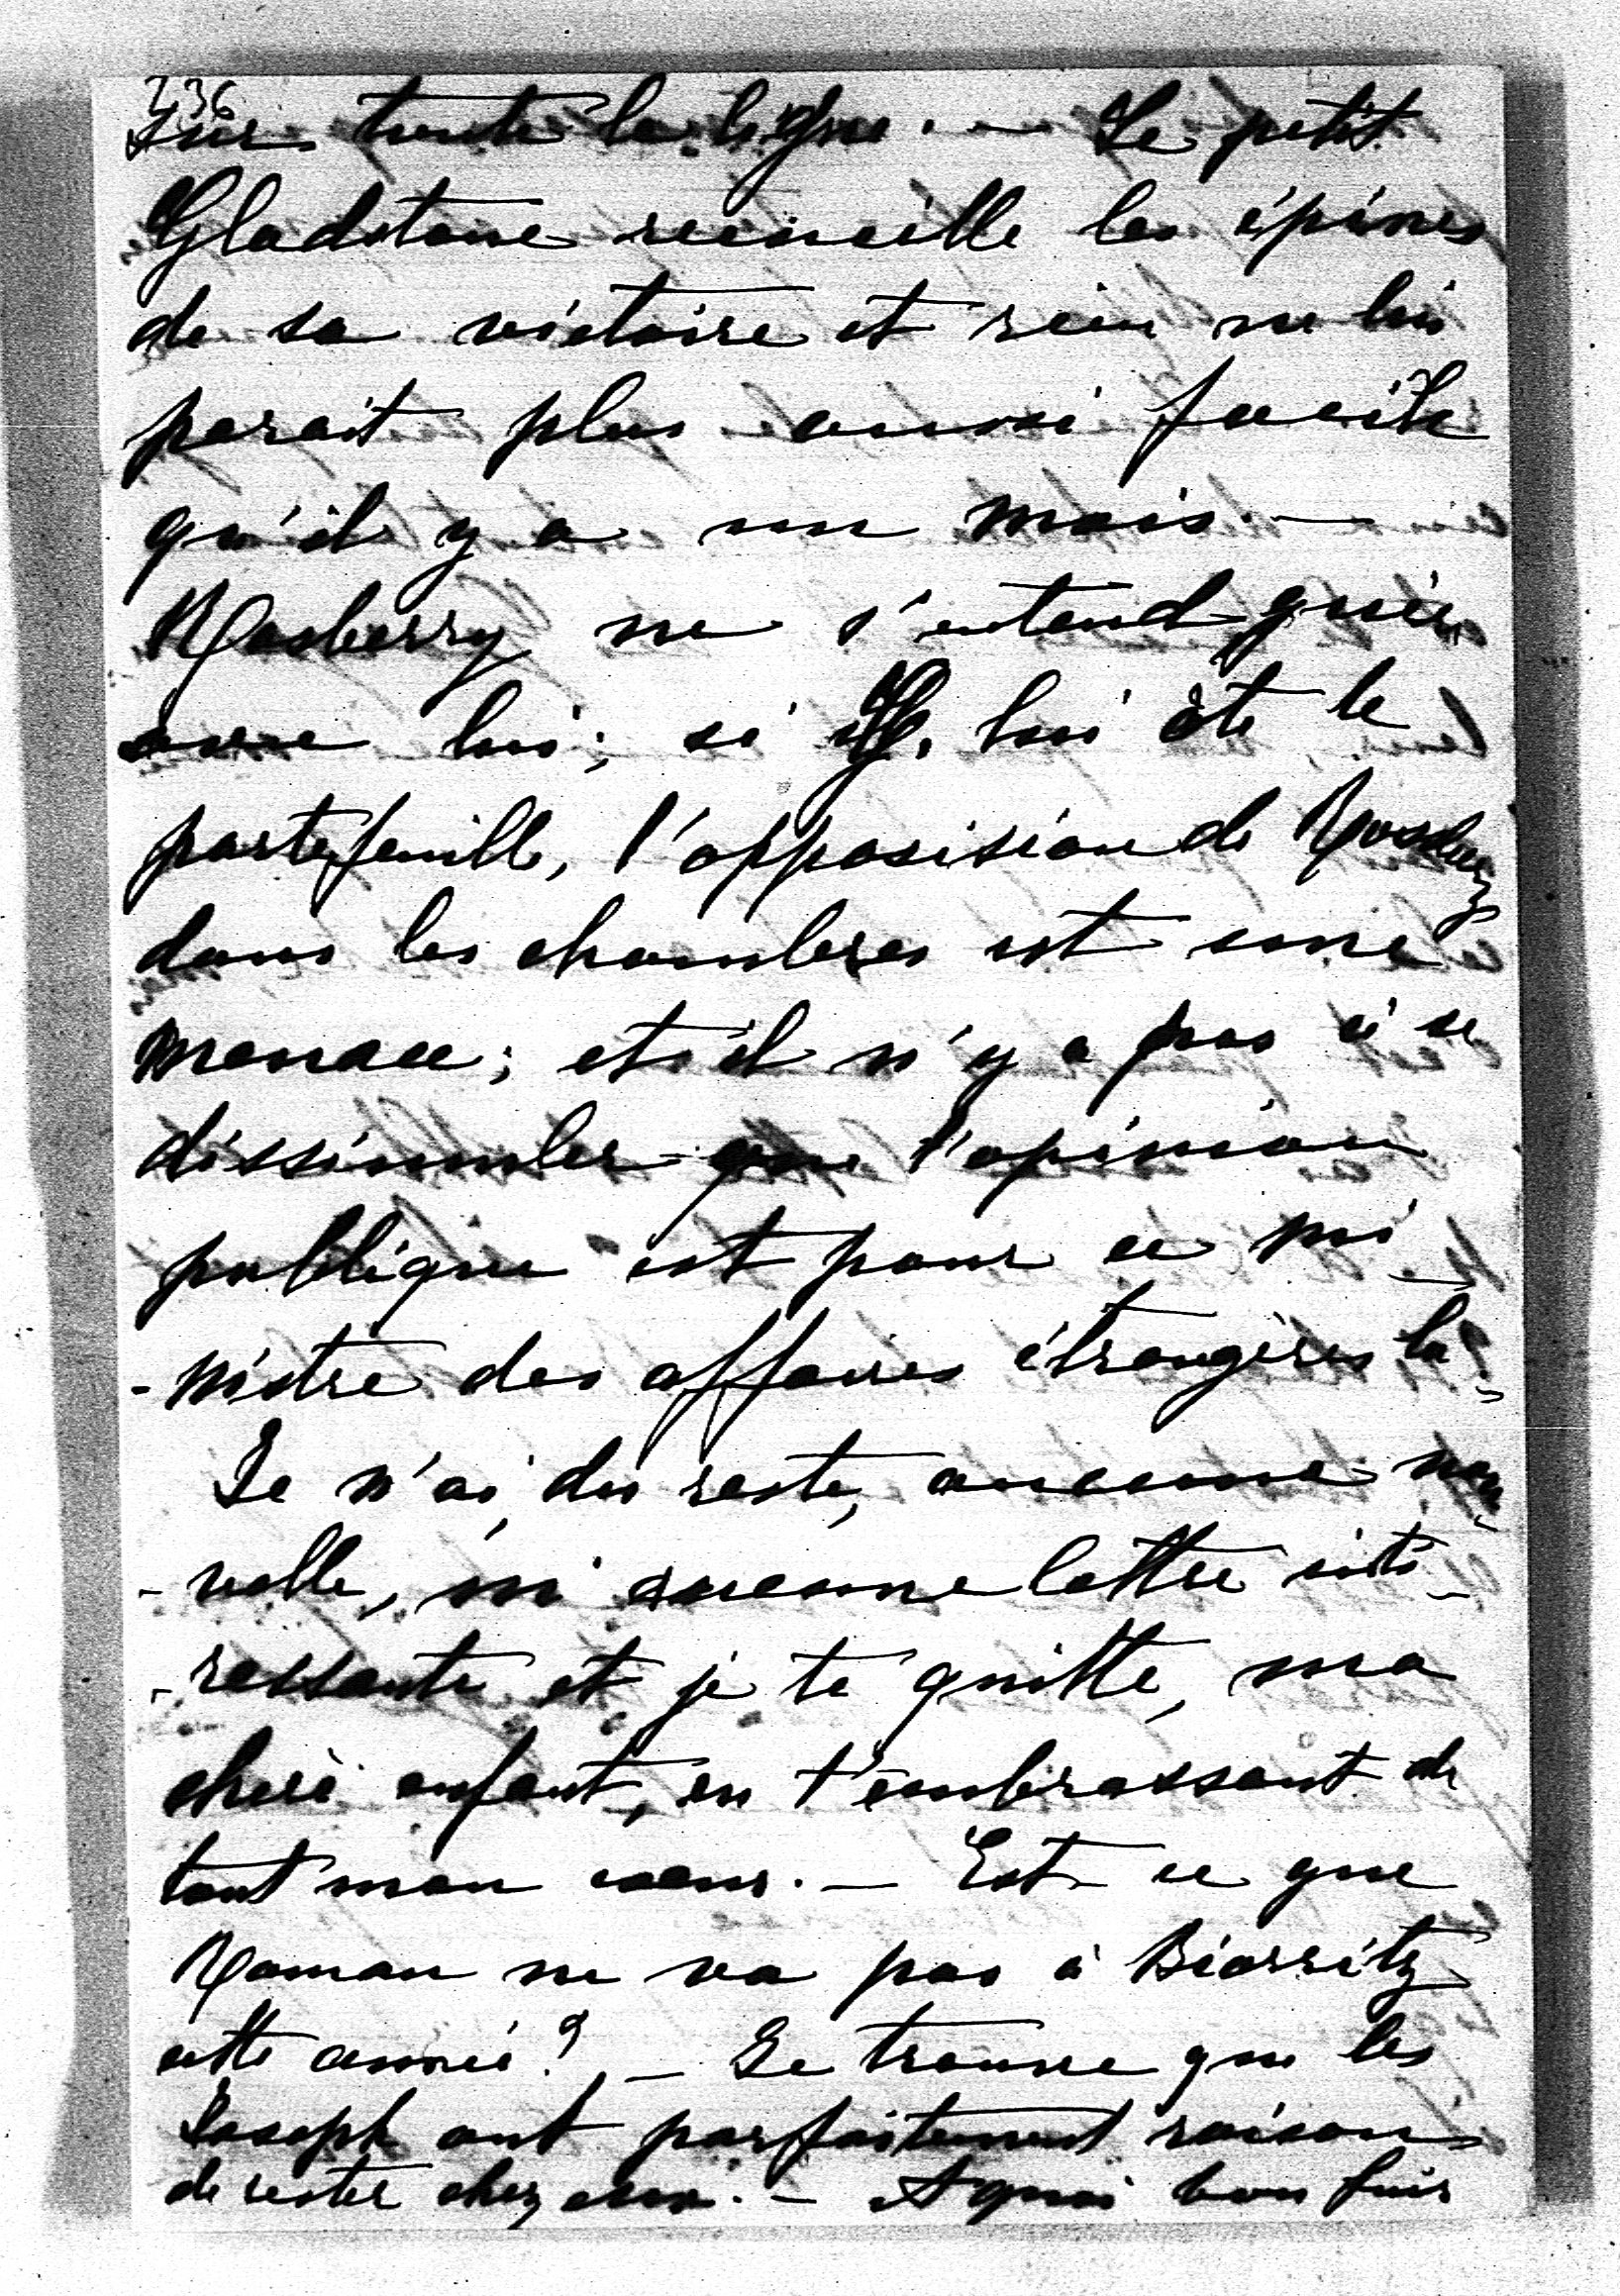 236
sur toute la ligne. — Le petit
Gladstone recueille les épines
de sa victoire et rien ne lui
parait plus aussi facile
qu'il y a un mois. —
Rosberry ne s'entend guère
avec lui; si G. lui ôte le
portefeuille, l'opposision de Rosbery
dans les chambres est une
menace; et il n'y a pas à se
dissimuler que l'opinion
publique est pour ce mi-
-nistre des affaires étrangères là.
Je n'ai, du reste, aucune nou-
-velle, ni aucune lettre inté-
-ressante et je te quitte, ma
chère enfant, en t'embrassant de
tout mon cœur. — Est-ce que
Roman ne va pas à Biarritz
cette année? — Je trouve que les
Joseph ont parfaitement raison
de rester chez eux. — A quoi bon fuir